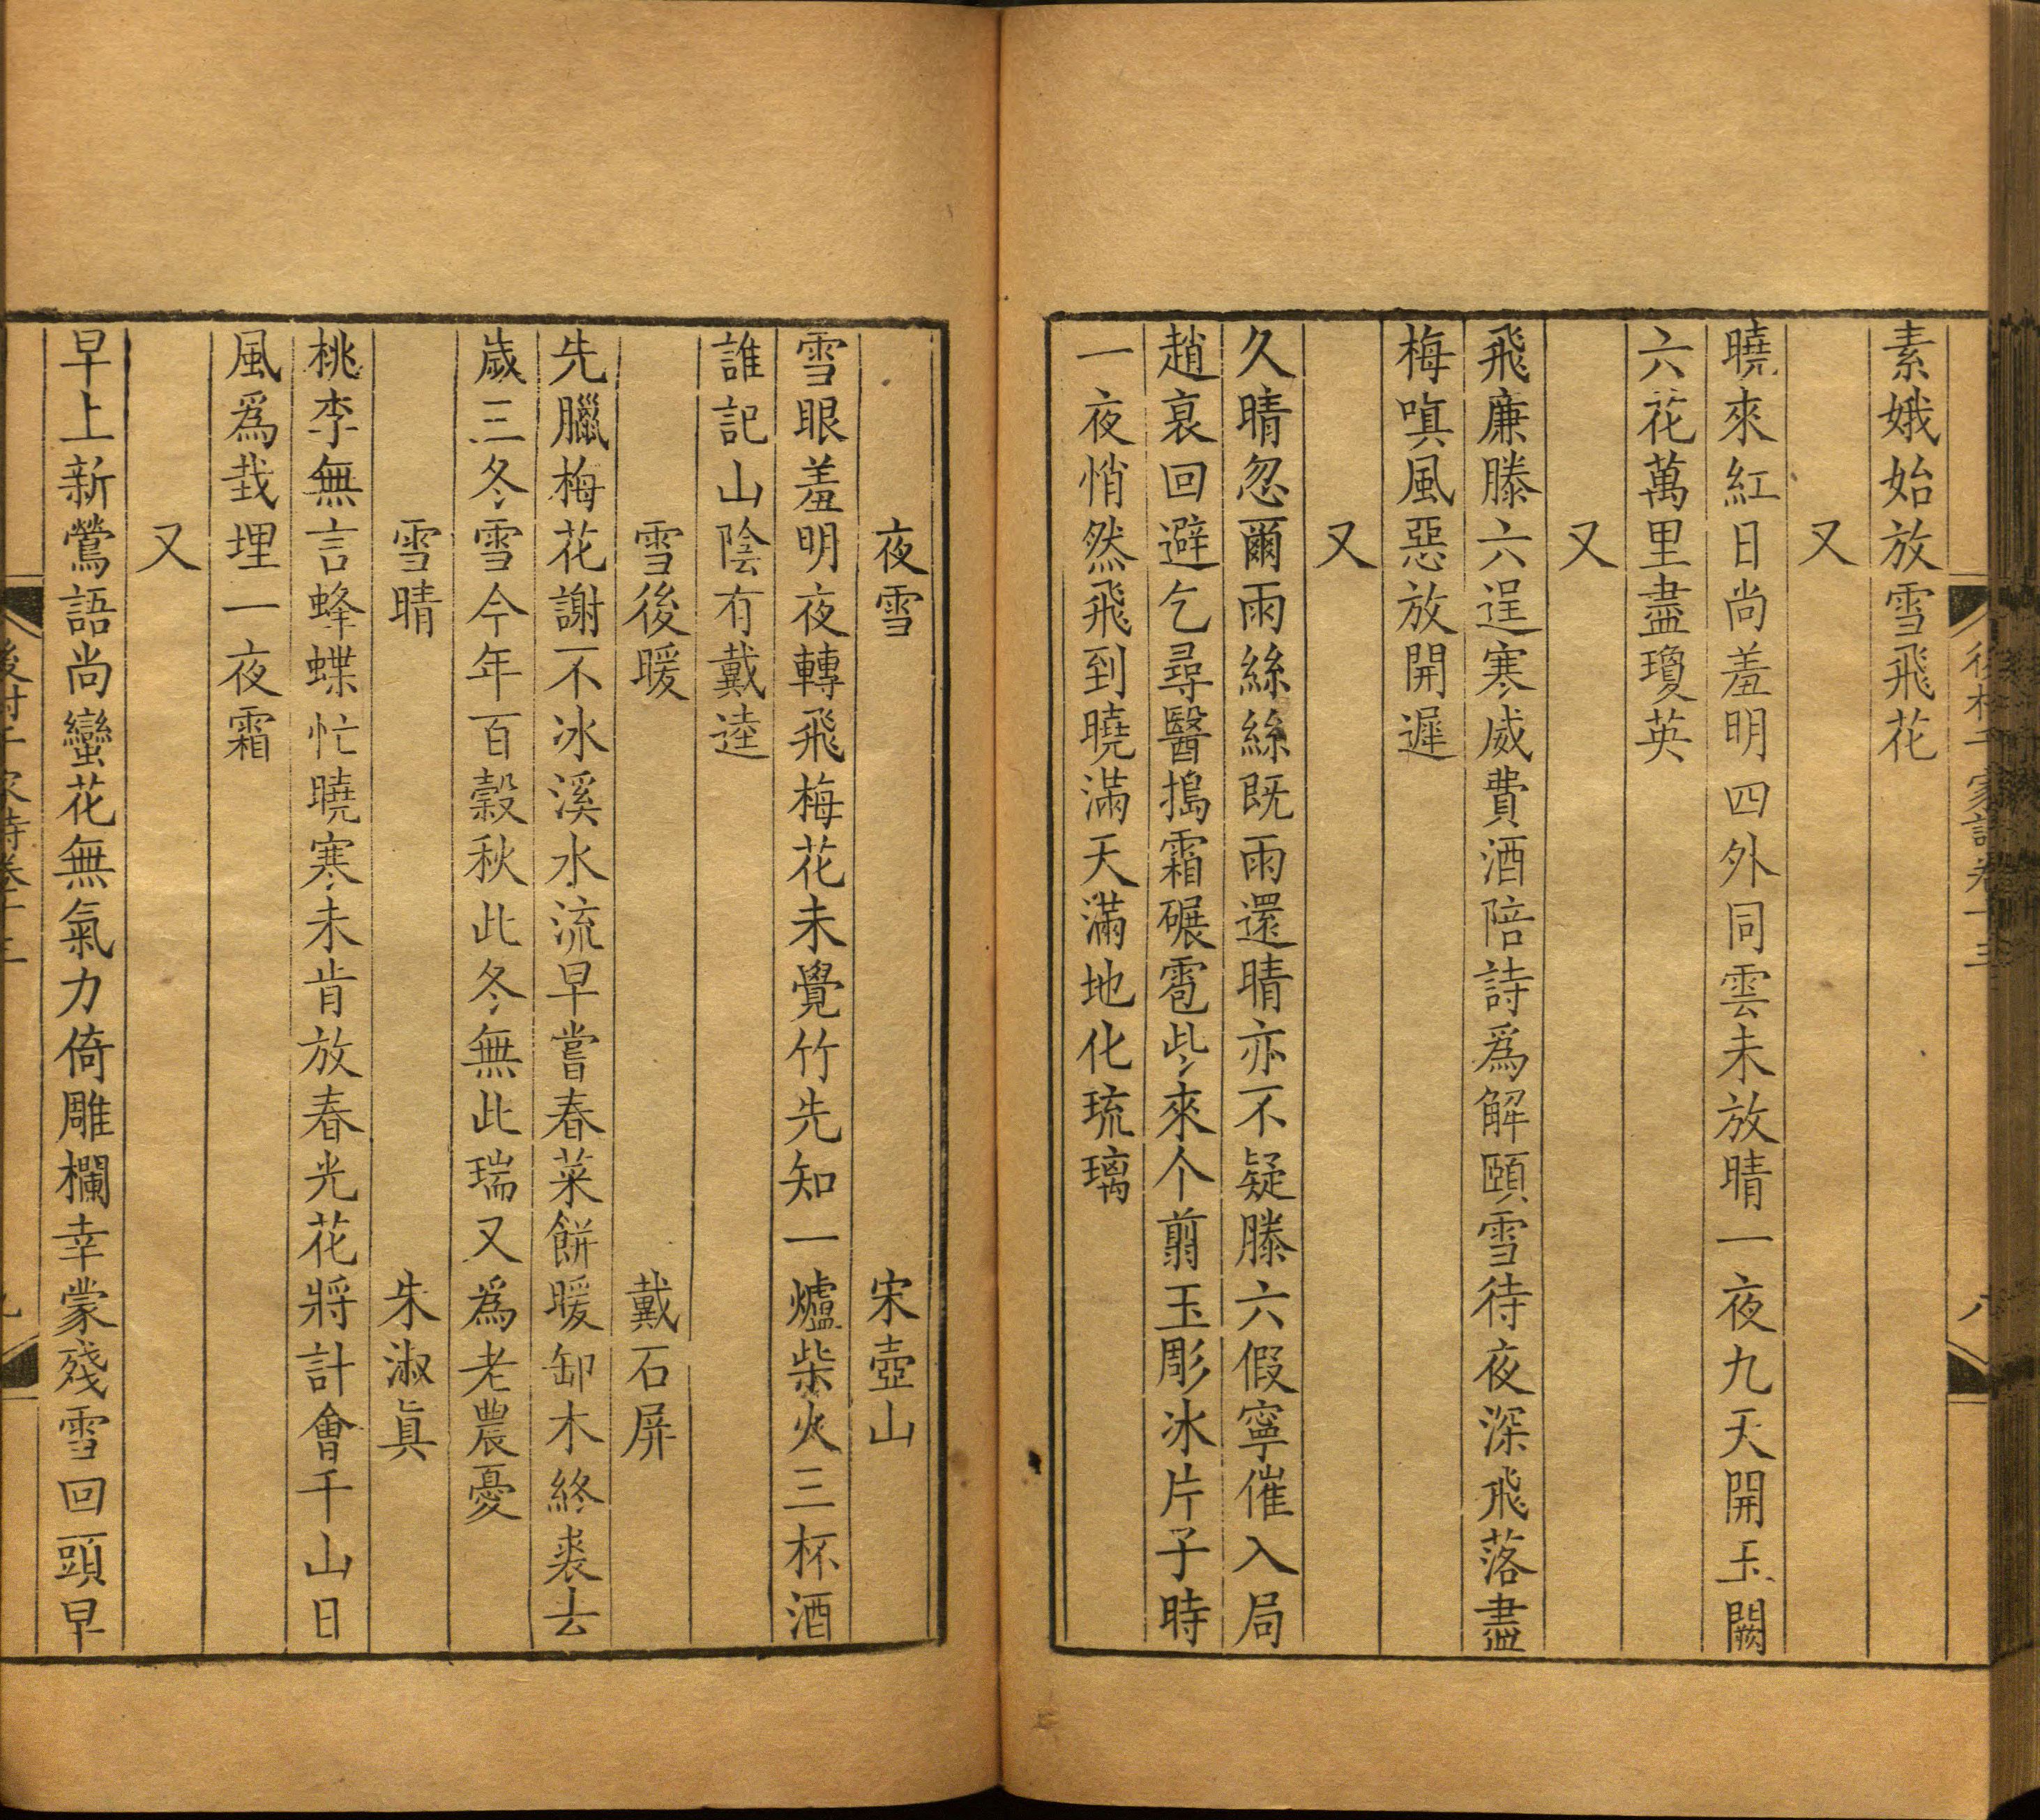 素娥始放雪飛花
又
曉來紅日尚羞明四外同雲未放晴一夜九天開玉闕
六花萬里盡瓊英
又
飛廉滕六逞寒威費酒陪詩爲解頤雪待夜深飛落盡
梅嗔風惡放開遲
又
久晴忽爾雨絲絲既雨還晴亦不疑滕六假寧催入局
趙哀回避乞尋醫搗霜碾雹些來个翦玉彫冰片子時
一夜悄然飛到曉滿天滿地化琉璃
夜雪 宋壺山
雪眼羞明夜轉飛梅花未覺竹先知一爐柴火三杯酒
誰記山陰有戴逵
雪後暖 戴石屏
先臘梅花謝不冰溪水流早嘗春菜餅暖卸木終裘去
歲三冬雪今年百穀秋此冬無此瑞又爲老農憂
雪晴 朱淑眞
桃李無言蜂蝶忙曉寒未肯放春光花將計會千山日
風爲栽埋一夜霜
又
早上新鶯語尚蠻花無氣力倚雕欄幸蒙殘雪回頭早